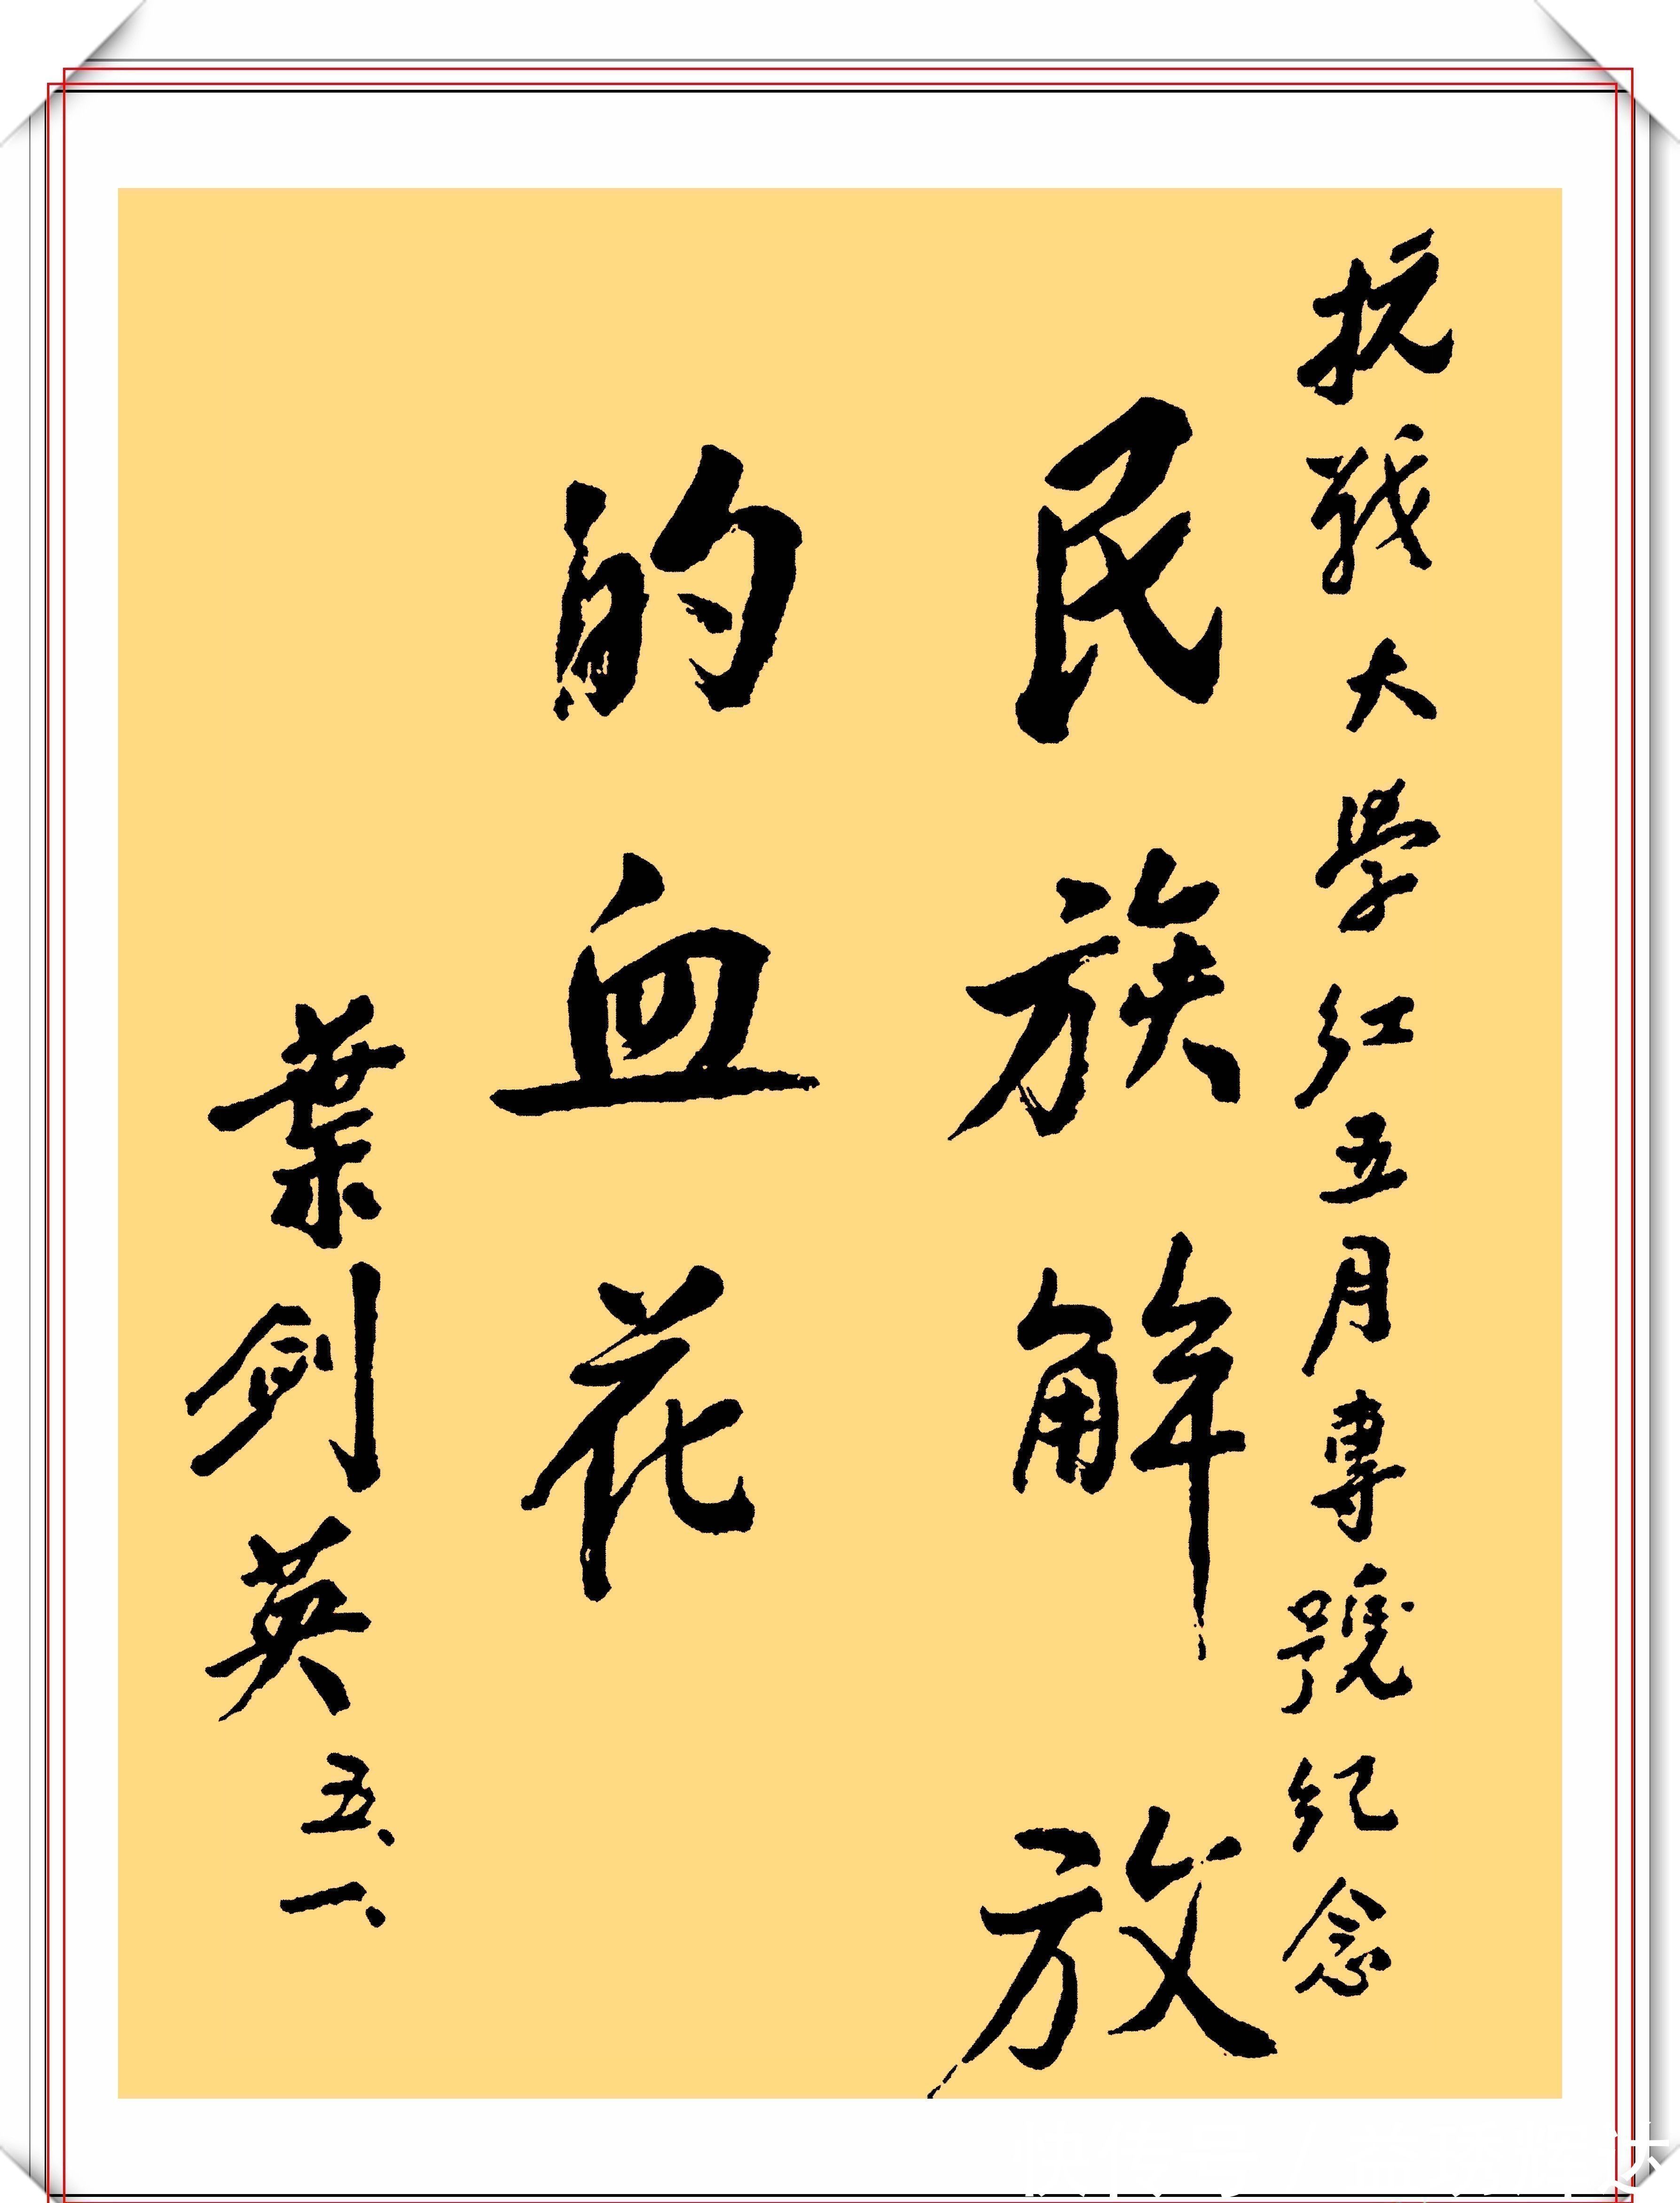 抗战大學红五月專號纪念
民族解放
的血花
葉剑英 五、一、